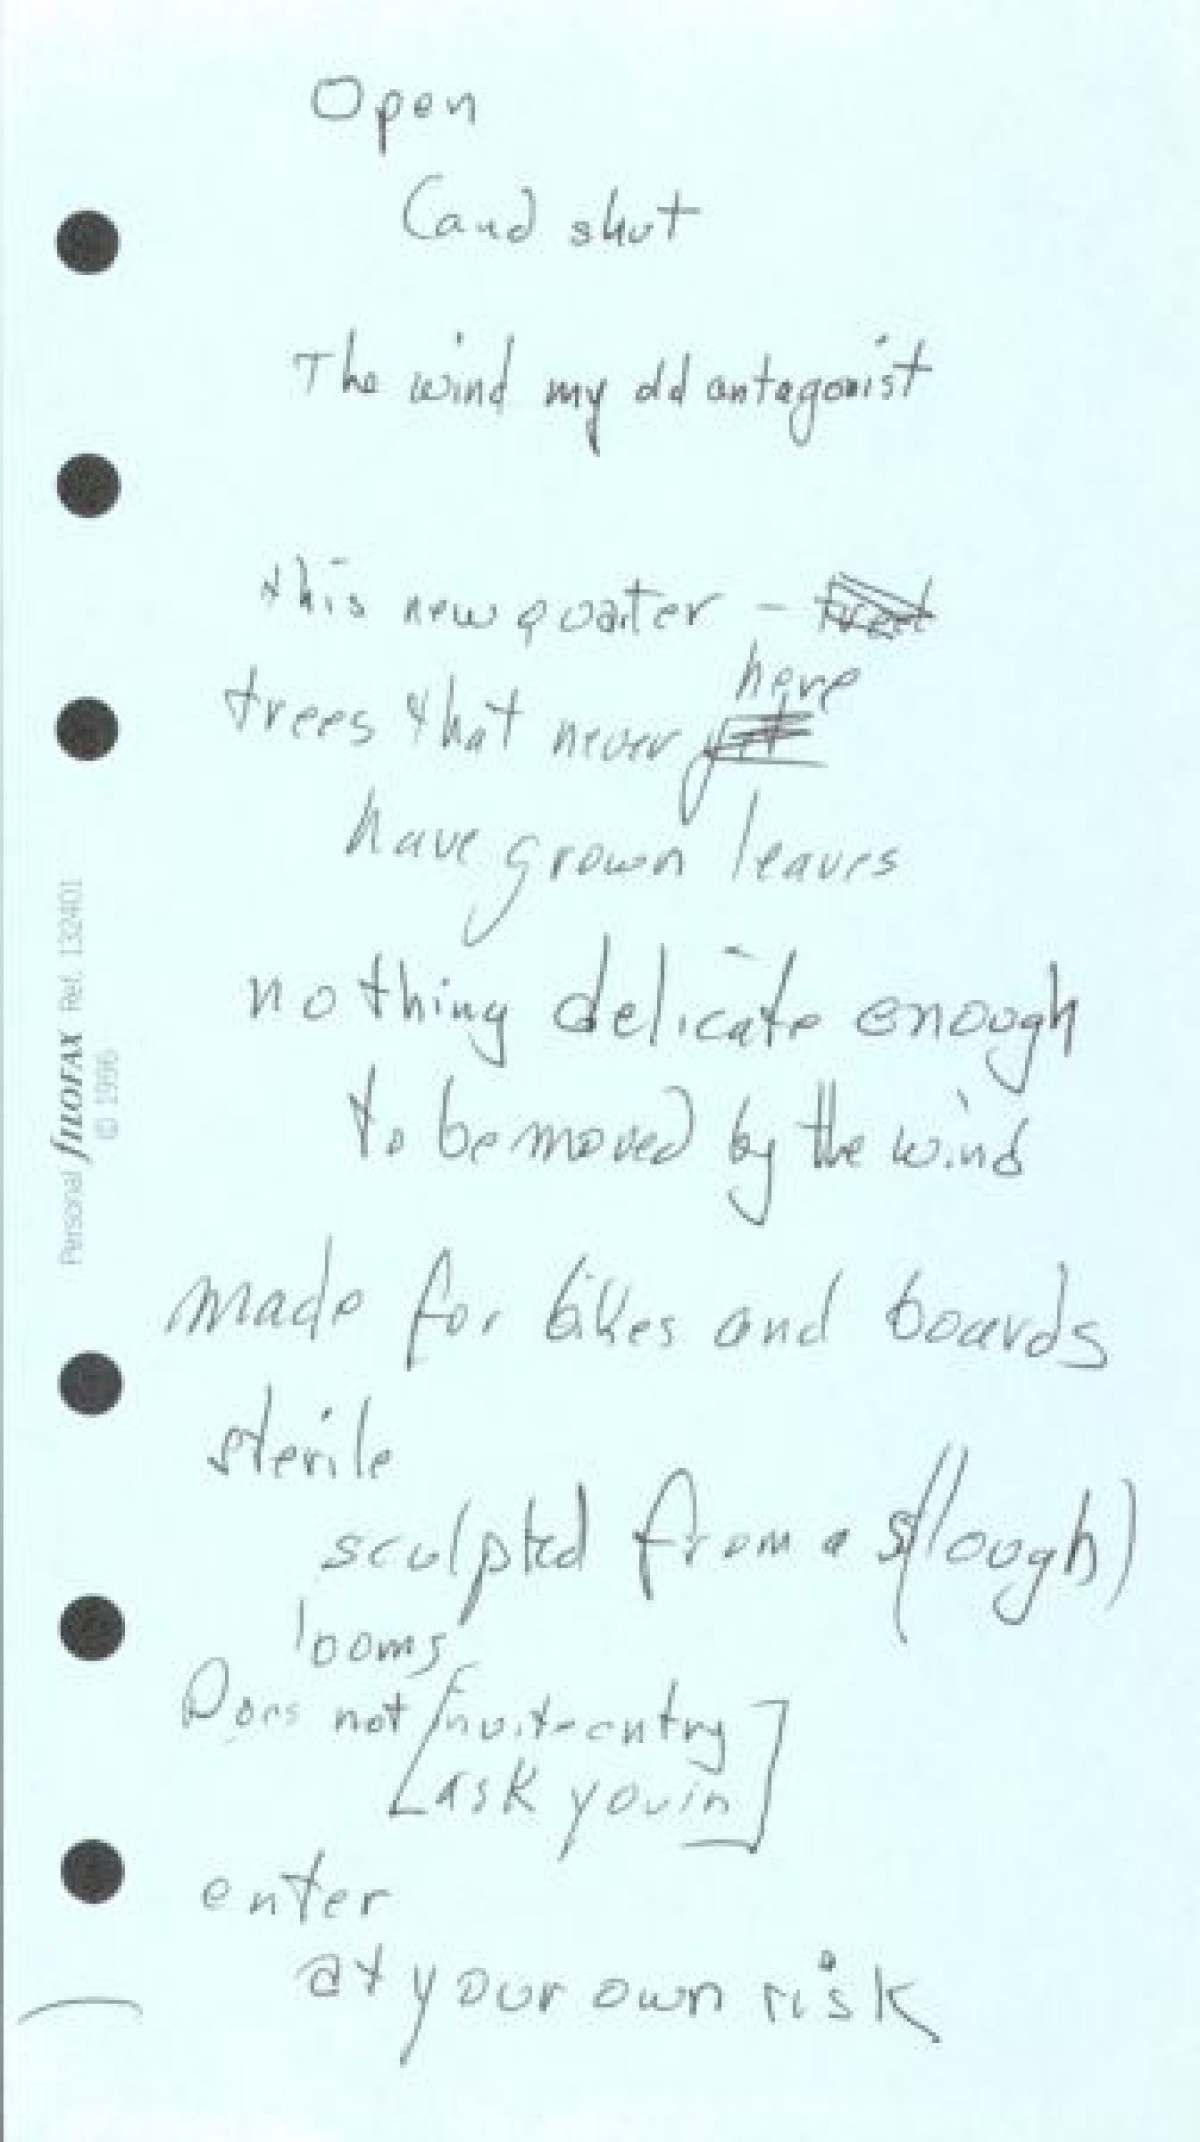 Open
(and shut
The wind my old antagonist
this new quarter –
here
trees that never
have grown leaves
nothing delicate enough
to be moved by the wind
made for bikes and boards
sterile
sculpted from a s(lough)
looms
Does not [invite entry
[ask you in]
enter
at your own risk
Personal fILOFAX Ref. 132401
© 1996